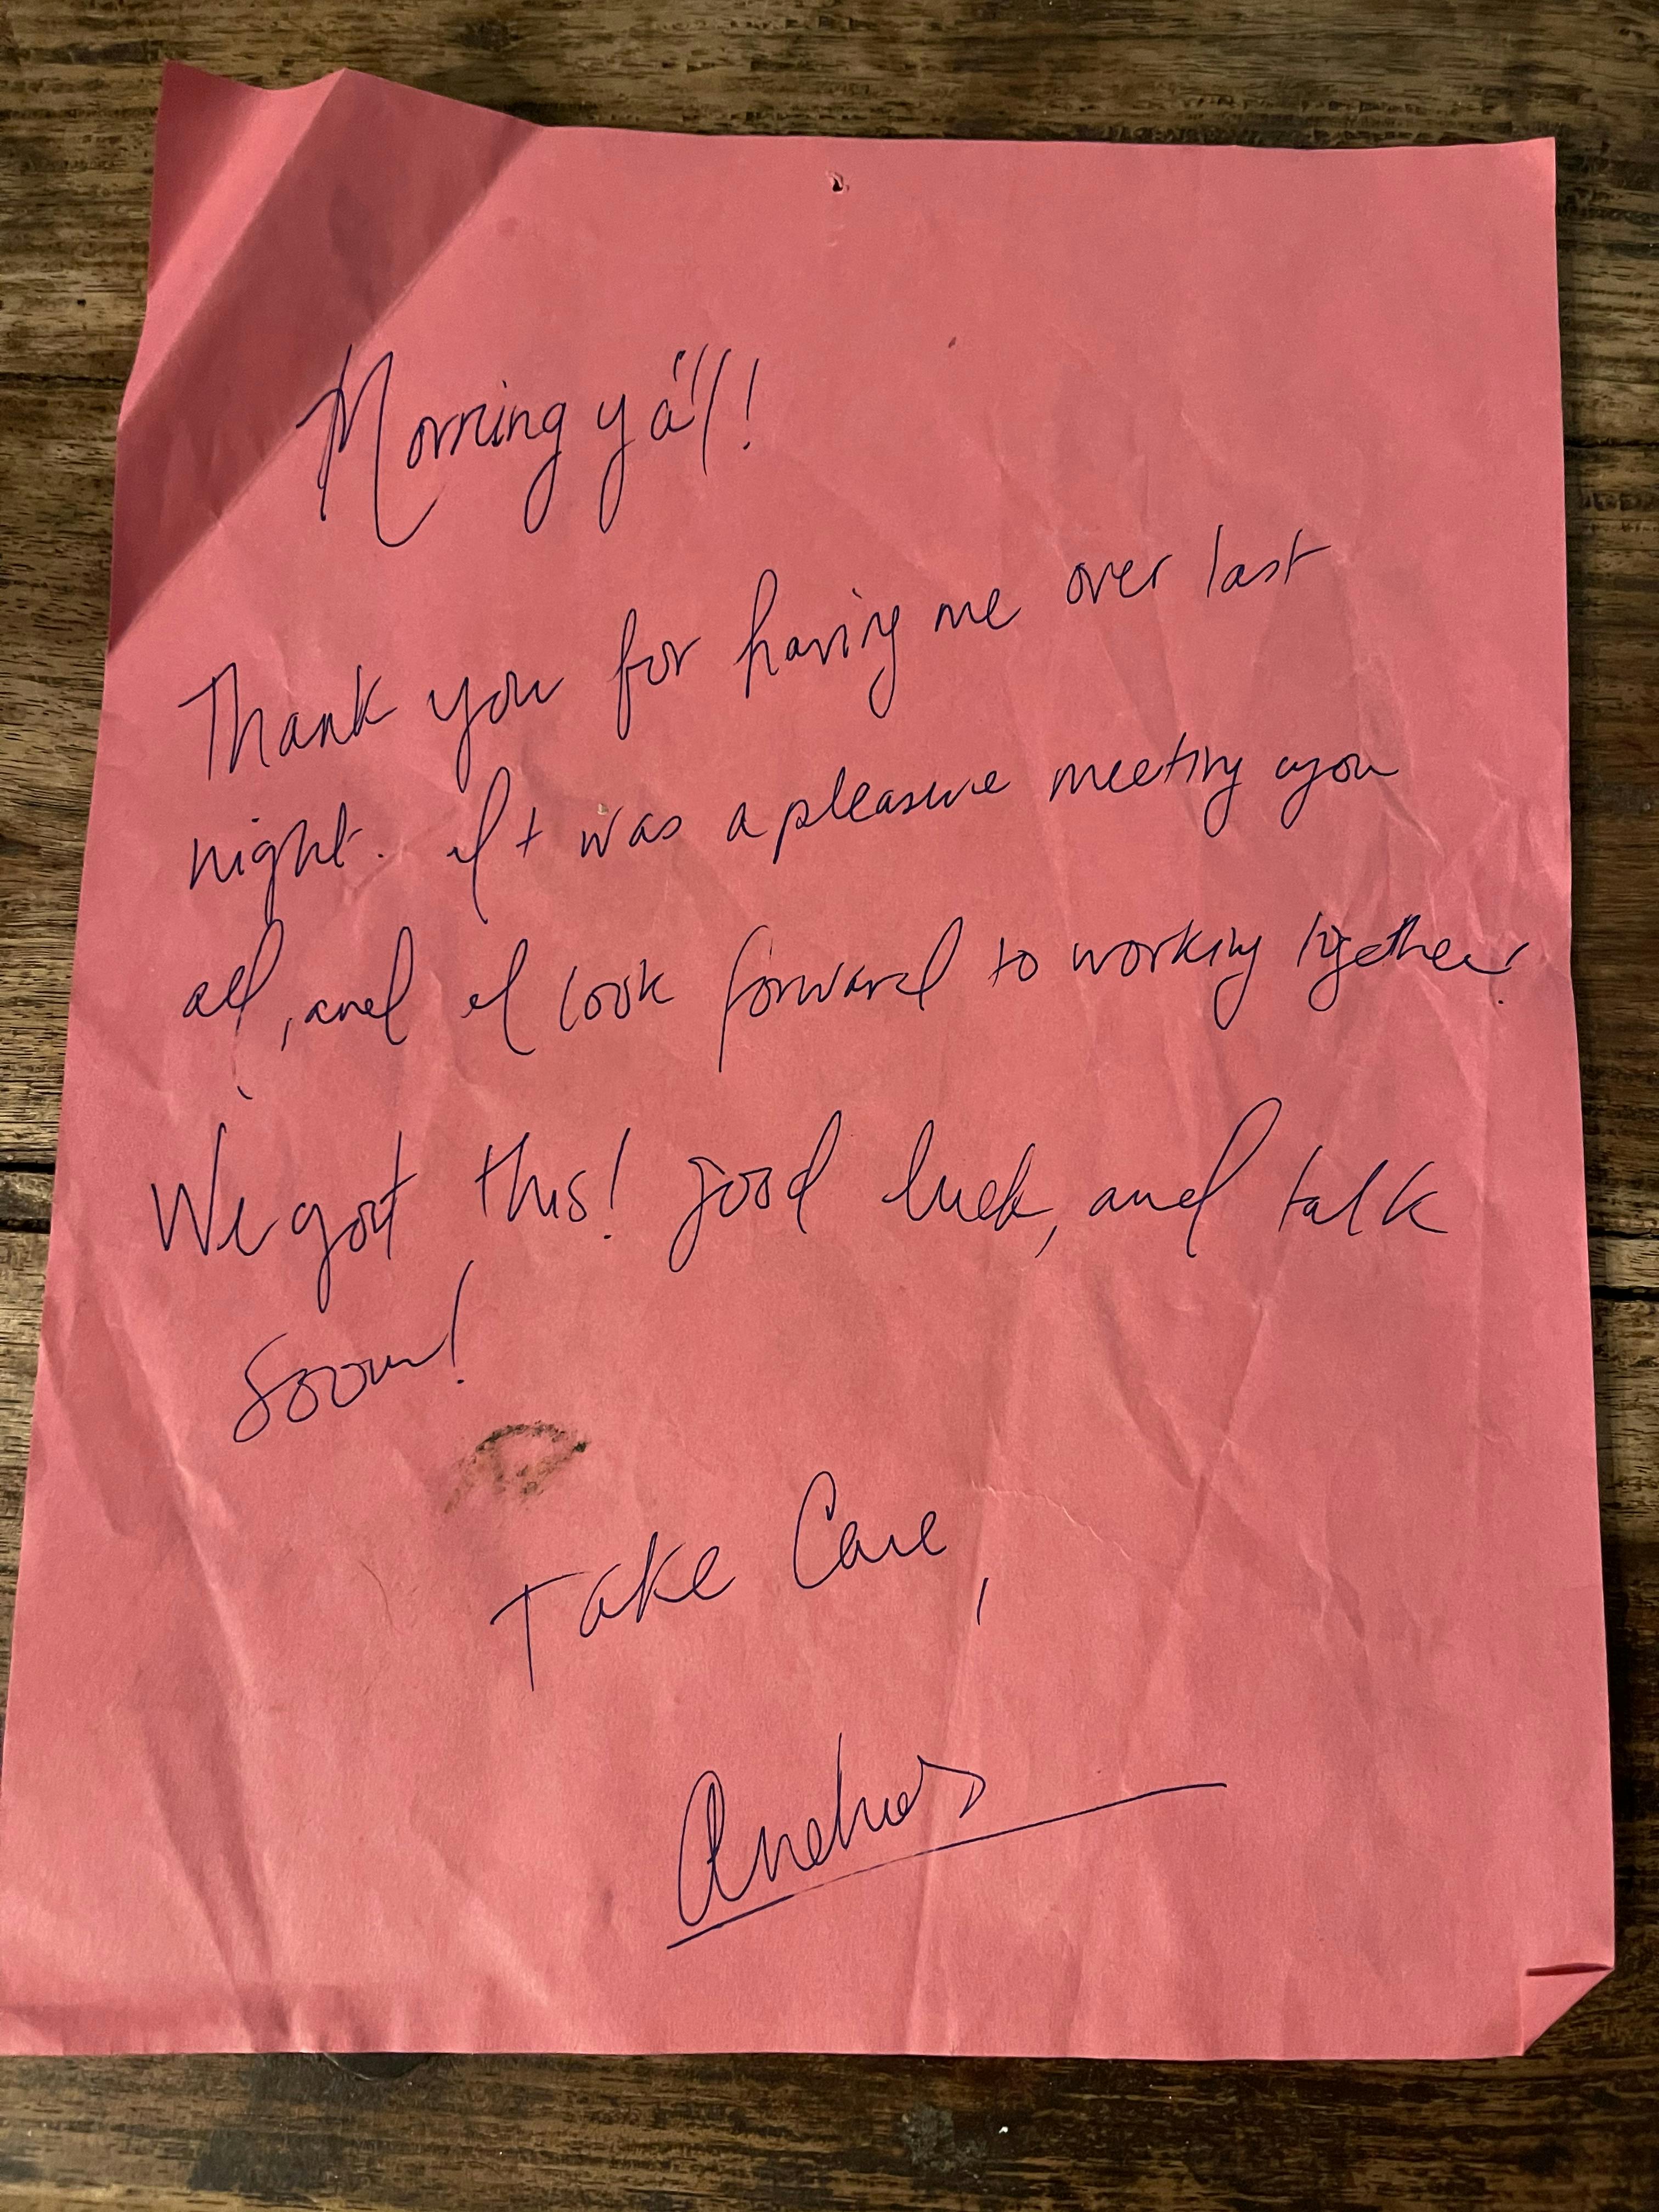 Morning ya'll!
Thank you for having me over last
night. It was a pleasure meeting you
all, and I look forward to working together!
We got this! good luck, and talk
soon!
Take Care,